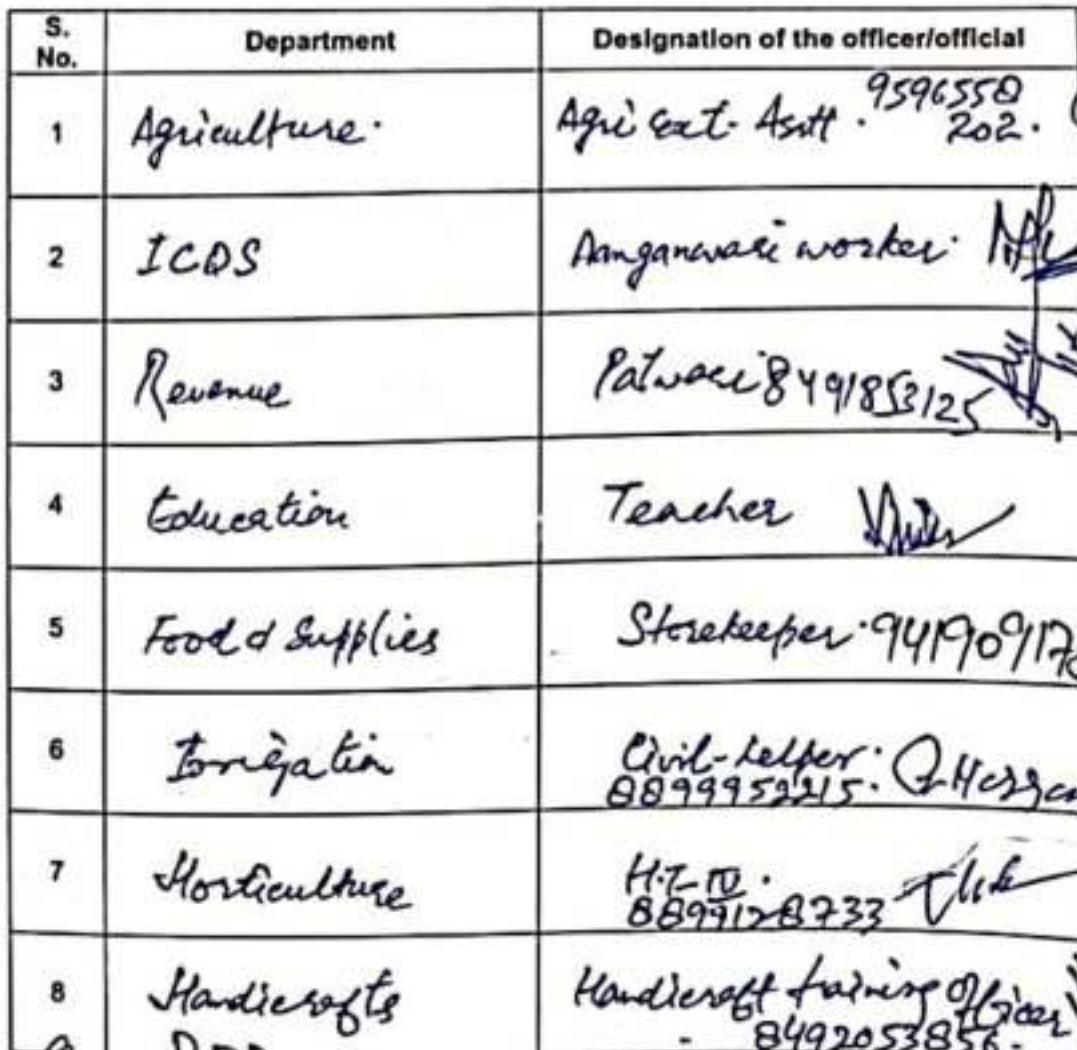 S. No. Department Designation of the officer/official
1 Agriculture. Agri Ext. Asstt. 9596558
202.
2 ICDS Aanganwari worker.
3 Revenue Patwari 8491853125
4 Education Teacher
5 Food & Supplies Storekeeper. 941909117
6 Irrigation Civil-helper.
8899952215. Hassan
7 Horticulture H.T-IV.
8899128733
8 Handicrafts Handicraft training Officer
- 8492053856.